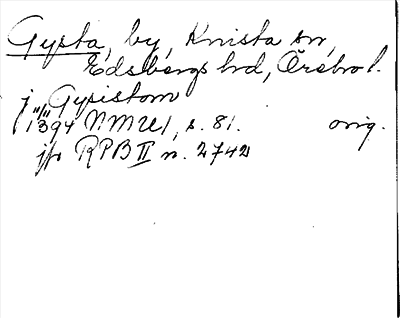 Gysta, by, Knista sn,
Edsbergs hd, Örebro l.
j "Gysistom"
1394 NMU 1, s. 81. orig.
jfr RPB II n. 2742